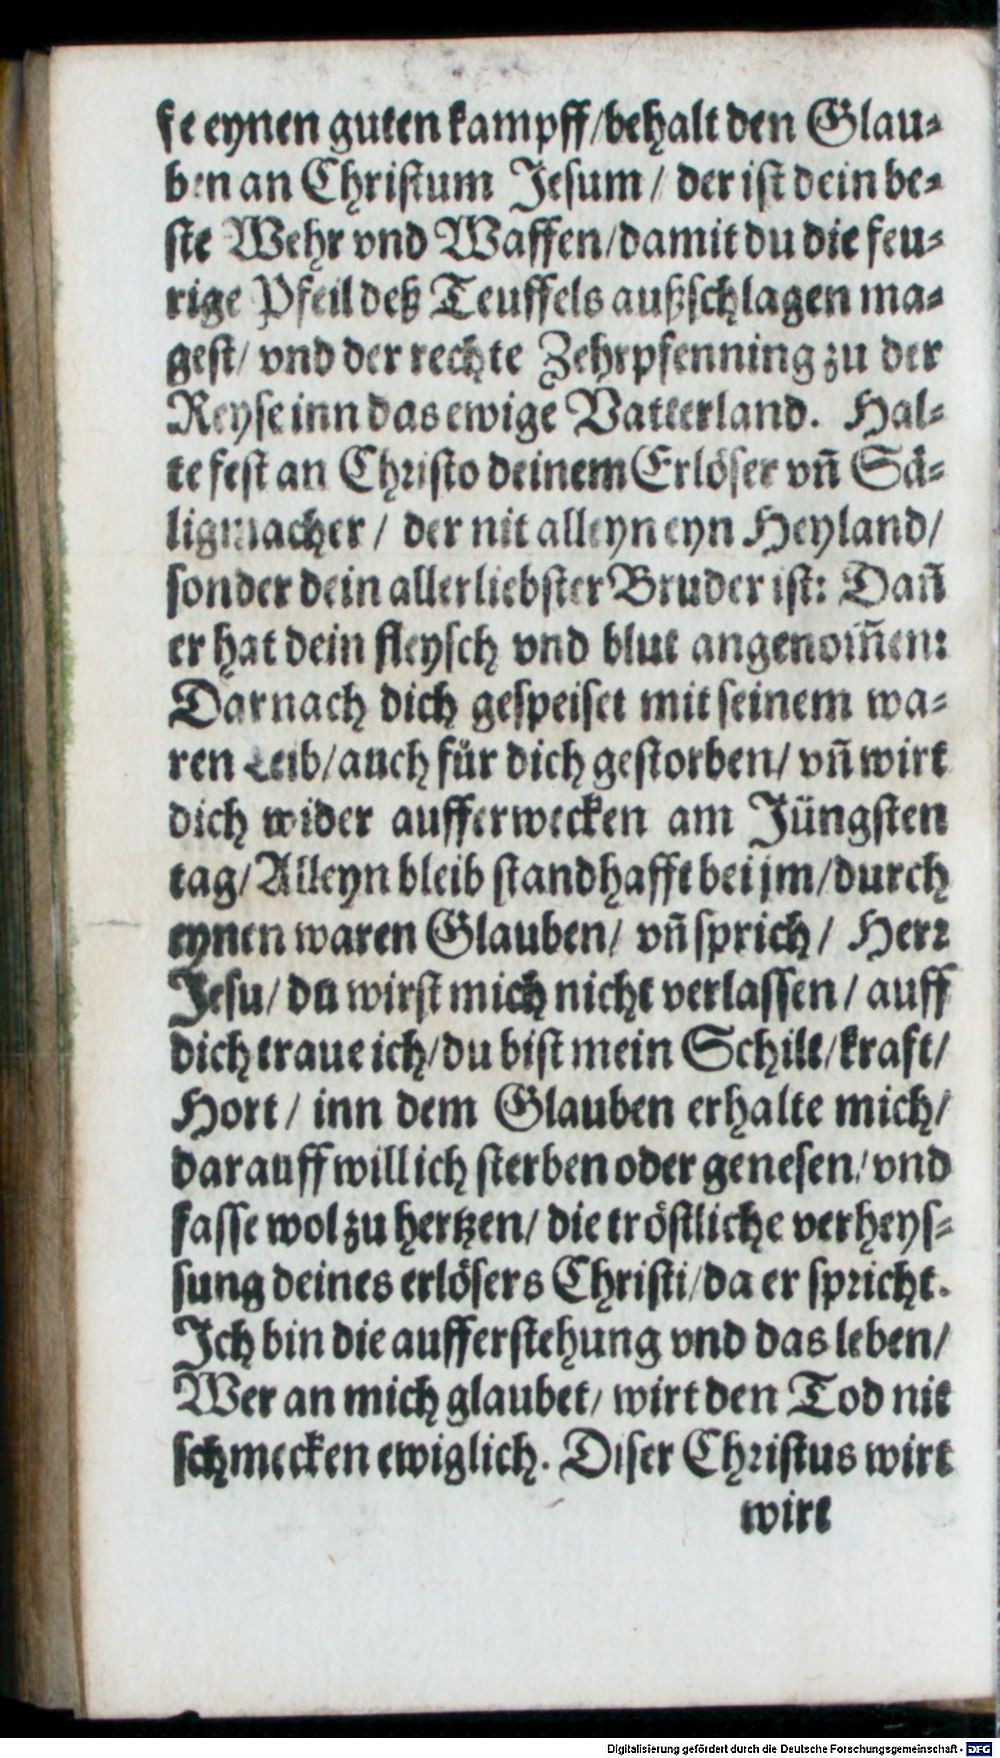 fe eynen guten kampff/behalt den Glau⸗
ben an Christum Jesum / der ist dein be⸗
ste Wehr vnd Waffen/damit du die feu⸗
rige Pfeil deß Teuffels außschlagen ma⸗
gest/ vnd der rechte Zehrpfenning zu der
Reyse inn das ewige Vatterland. Hal⸗
te fest an Christo deinem Erlöser vñ Sä⸗
ligmacher / der nit alleyn eyn Heyland/
sonder dein allerliebster Bruder ist: Dañ
er hat dein fleysch vnd blut angenom̃en:
Darnach dich gespeiset mit seinem wa⸗
ren Leib/auch für dich gestorben/ vñ wirt
dich wider aufferwecken am Jüngsten
tag/Alleyn bleib standhafft bei jm/durch
eynen waren Glauben/ vñ sprich / Herr
Jesu/ du wirst mich nicht verlassen / auff
dich traue ich/du bist mein Schilt/kraft/
Hort / inn dem Glauben erhalte mich/
darauff will ich sterben oder genesen/ vnd
fasse wol zu hertzen/ die tröstliche verheys⸗
sung deines erlösers Christi/da er spricht.
Ich bin die aufferstehung vnd das leben/
Wer an mich glaubet/ wirt den Tod nit
schmecken ewiglich. Diser Christus wirt
wirt
Digitalisierung gefördert durch die Deutsche Forschungsgemeinschaft - DFG